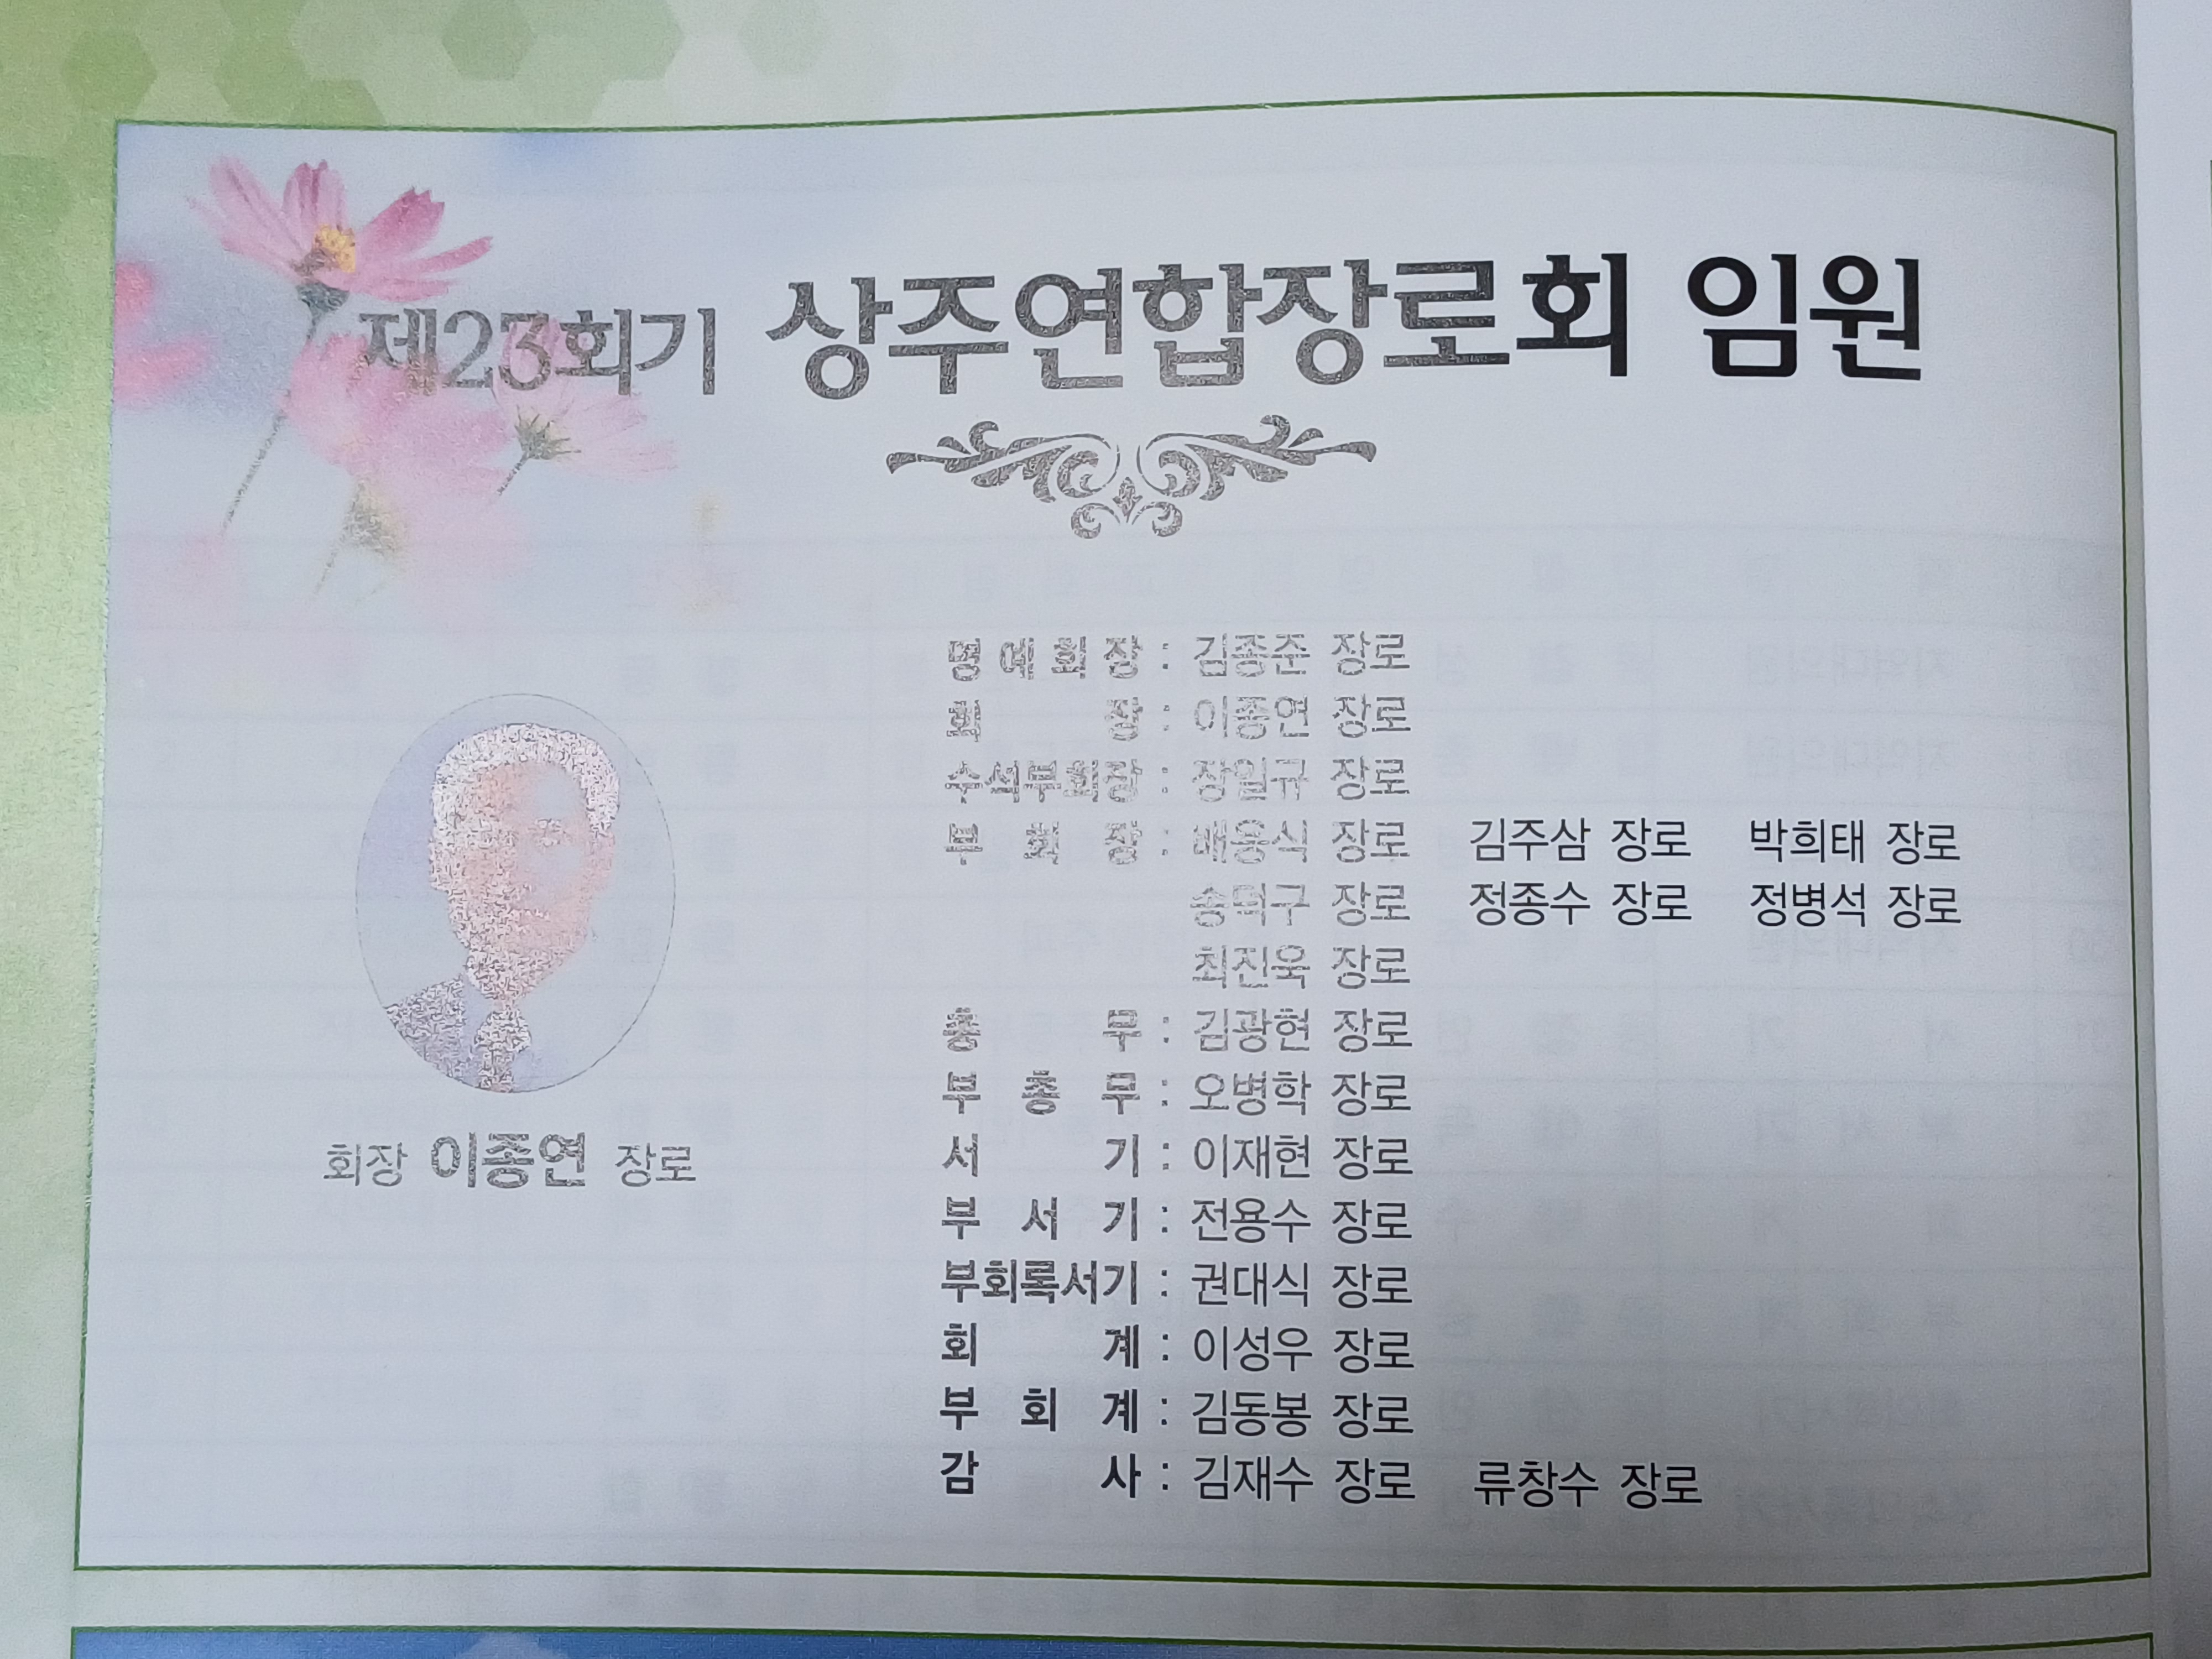 제23회기 상주연합장로회 임원
명예회장 : 김종준 장로
회 장 : 이종연 장로
수석부회장 : 장일규 장로
부 회 장 : 배용식 장로 김주삼 장로 박희태 장로
송덕구 장로 정종수 장로 정병석 장로
최진욱 장로
총 무 : 김광현 장로
부 총 무 : 오병학 장로
서 기 : 이재현 장로
부 서 기 : 전용수 장로
부회록서기 : 권대식 장로
회 계 : 이성우 장로
부 회 계 : 김동봉 장로
감 사 : 김재수 장로 류창수 장로
회장 이종연 장로